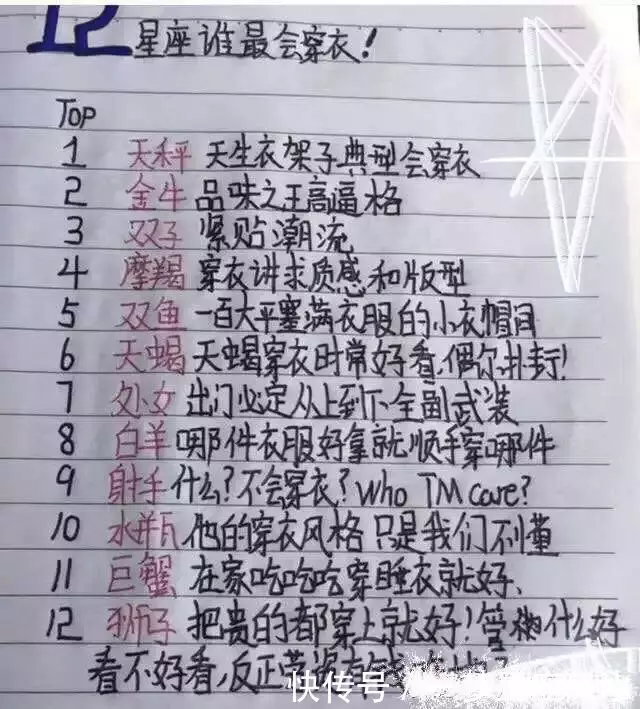 12星座谁最会穿衣!
TOP
1 天秤 天生衣架子典型会穿衣
2 金牛 品味之王高逼格
3 双子 紧贴潮流
4 摩羯 穿衣讲求质感和版型
5 双鱼 一百大平塞满衣服的小衣帽间
6 天蝎 天蝎穿衣时常好看,偶尔扑封!
7 处女 出门必定从上到下全副武装
8 白羊 哪件衣服好拿就顺手穿哪件
9 射手 什么?不会穿衣?Who TM care?
10 水瓶 他的穿衣风格只是我们不懂
11 巨蟹 在家吃吃吃穿睡衣就好、
12 狮子 把贵的都穿上就好!管他什么好
看不好看,反正
快传号/